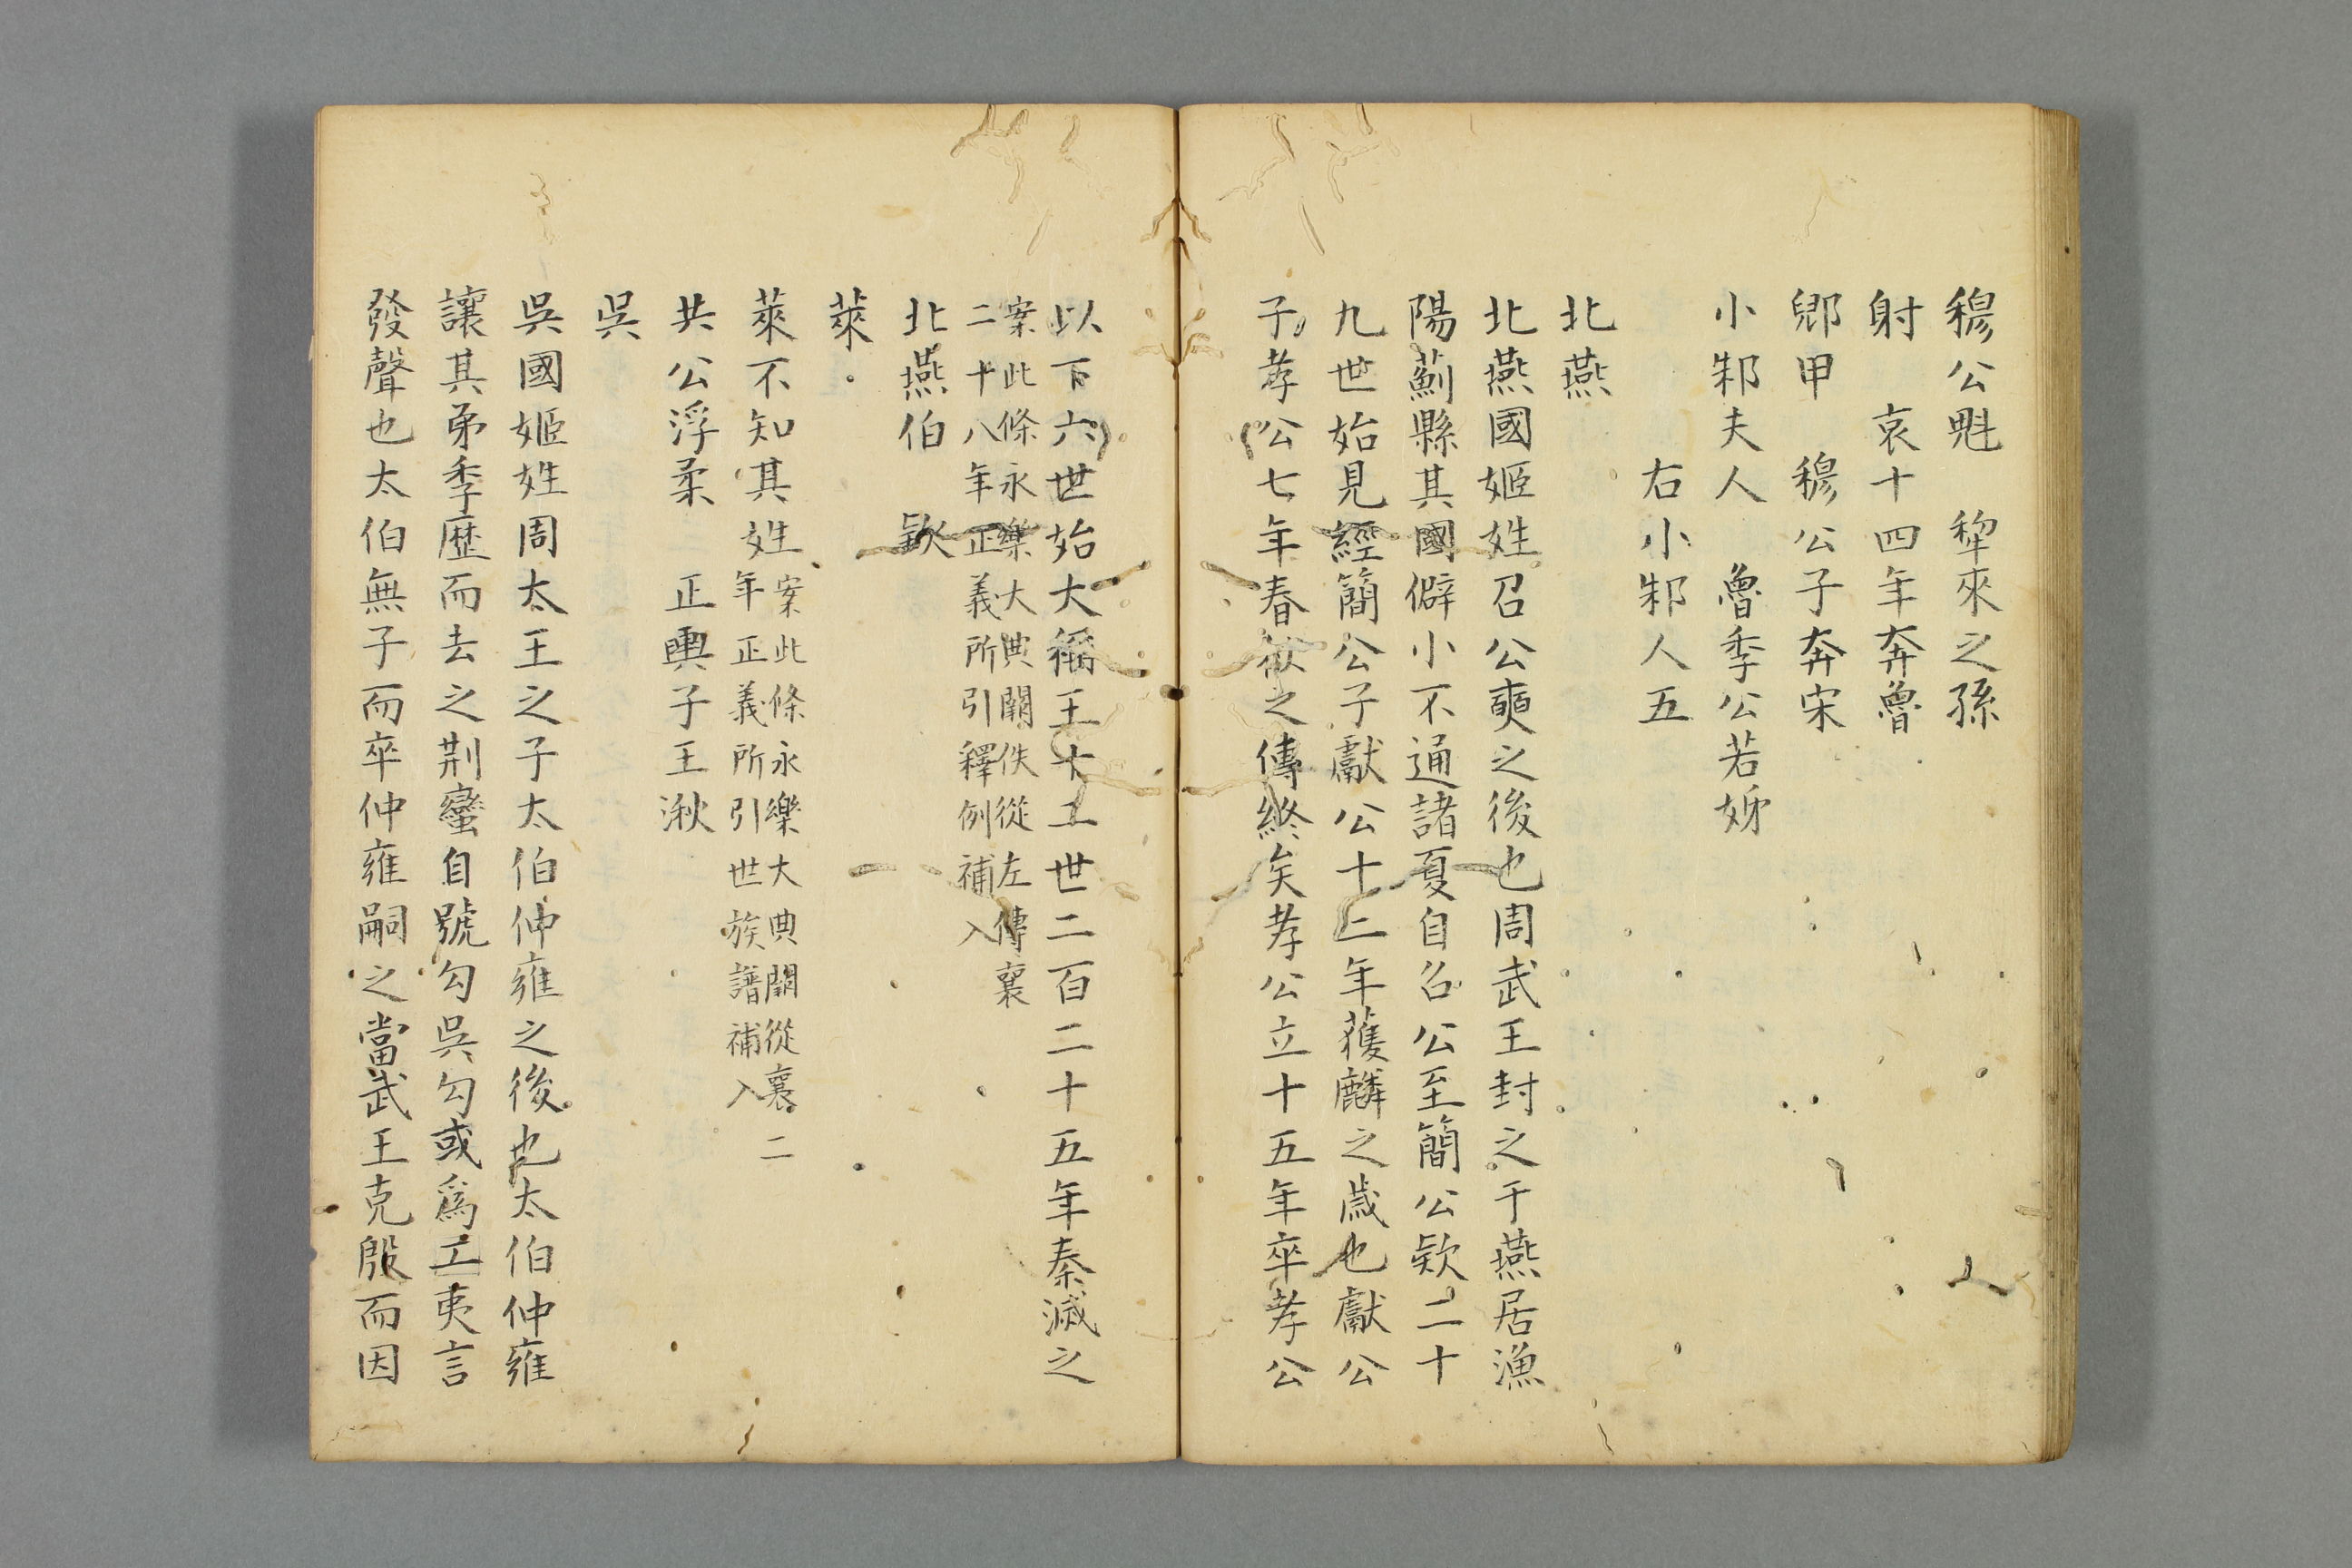 穆公魁　犂來之孫
射　哀十四年奔魯
鄉甲　穆公子奔宋
小邾夫人　魯季公若姊
右小邾人五
北燕
北燕國姬姓召公奭之後也周武王封之于燕居漁
陽薊縣其國僻小不通諸夏自召公至簡公欵二十
九世始見經簡公子獻公十二年獲麟之歲也獻公
子孝公七年春秋之傳終矣孝公立十五年卒孝公
以下六世始大稱王十一世二百二十五年秦滅之
案此條永樂大典闕佚從左傳襄
二十八年正義所引釋例補入
北燕伯　欵
萊
萊不知其姓案此條永樂大典闕從襄二
年正義所引世族譜補入
共公浮柔　正輿子王湫
吳
吳國姬姓周太王之子太伯仲雍之後也太伯仲雍
讓其弟季歴而去之荆蠻自號勾吳勾或爲工夷言
發聲也太伯無子而卒仲雍嗣之當武王克殷而因